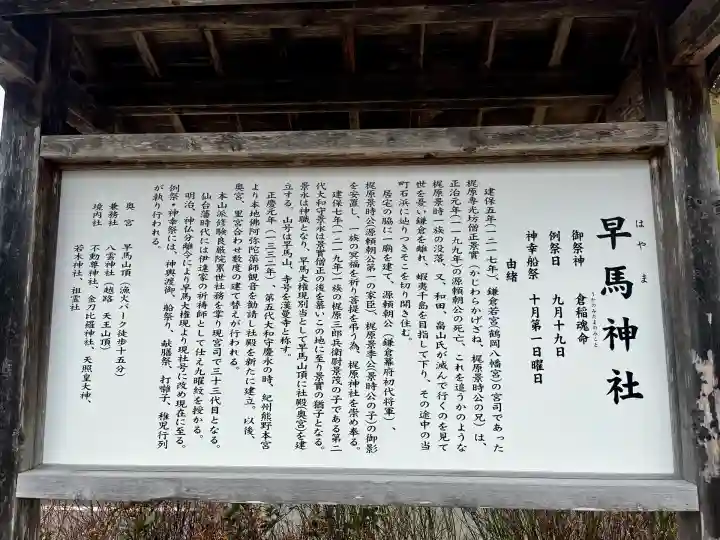 早馬神社
はやま
御祭神　倉稲魂命
うかのみたまのみこと
例祭日　九月十九日
神幸船祭　十月第一日曜日
由緒
建保五年(一二一七年)、鎌倉若宮(鶴岡八幡宮)の宮司であった
梶原専光坊僧正景實(かじわらかげざね、梶原景時公の兄)は、
正治元年(一一九九年)の源頼朝公の死亡、これを追うかのような
梶原景時一族の没落、又、和田、畠山氏が滅んで行くのを見て
世を憂い鎌倉を離れ、蝦夷千島を目指して下り、その途中の当
町石浜に辿りつきそこを切り開き住む。
居宅の脇に一廟を建て、源頼朝公(鎌倉幕府初代将軍)、
梶原景時公(源頼朝公第一の家臣)、梶原景季公(景時公の子)の御影
を安置し、一族の冥福を祈り菩提を弔う為、梶原神社を崇め奉る。
建保七年(一二一九年)一族の梶原三郎兵衛尉景茂の子である第二
代大和守景永は景實僧正の後を慕いこの地に至り景實の猶子となる。
景永は神職となり、早馬大権現別当として早馬山頂に社殿(奥宮)を建
立する。山号は早馬山、寺号を漢曼寺と称す。
正慶元年(一三三二年)、第五代大和守慶永の時、紀州熊野本宮
より本地佛阿弥陀薬師観音を勧請し社殿を新たに建立。以後、
奥宮、里宮合わせ数度の建て替えが行われる。
本山派修験良厳院累世社務を掌り現宮司で三十三代目となる。
仙台藩時代には伊達家の祈祷師として仕え九曜紋を授かる。
明治、神仏分離令により早馬大権現より現社号に改め現在に至る。
例祭・神幸祭には、神輿渡御、船祭り、献膳祭、打囃子、稚児行列
が執り行われる。
奥宮　早馬山頂(漁火パーク徒歩十五分)
兼務社　八雲神社(越路　天王山頂)
境内社　不動尊神社、金刀比羅神社、天照皇大神、
若木神社、祖霊社